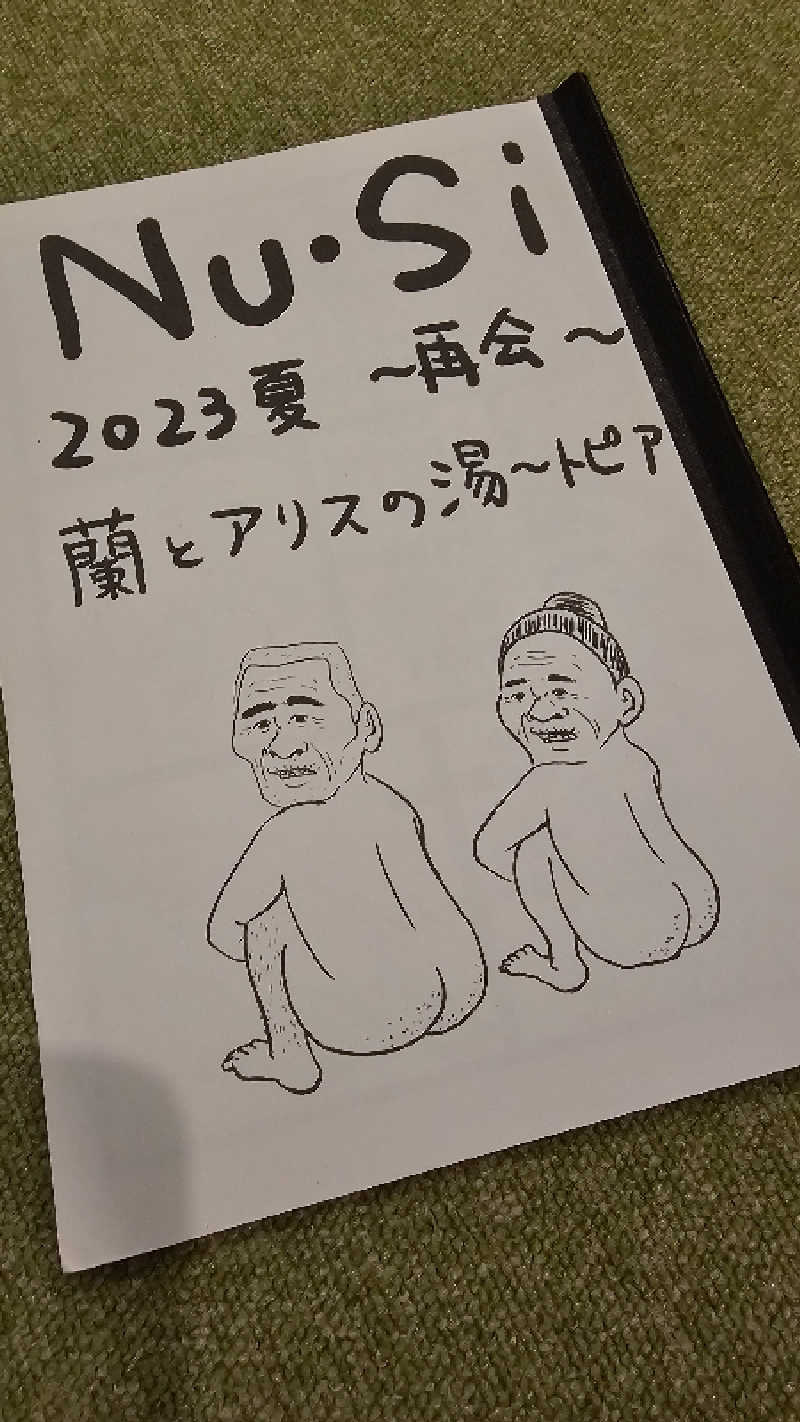 Nu・Si
2023夏 ～再会～
蘭とアリスの湯～トピア